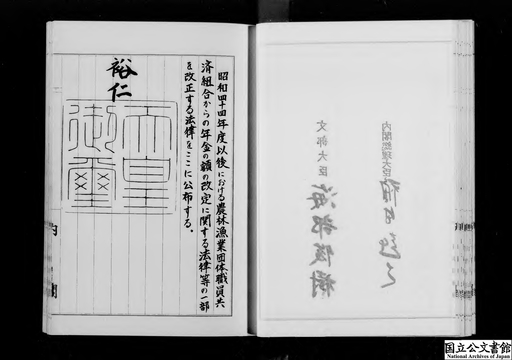 昭和四十四年度以後における農林漁業団体職員共
済組合からの年金の額の改定に関する法律等の一部
を改正する法律をここに公布する。
裕仁
天皇
御璽
内閣総理大臣
福田赳夫
文部大臣
海部俊樹
国立公文書館
National Archives of Japan